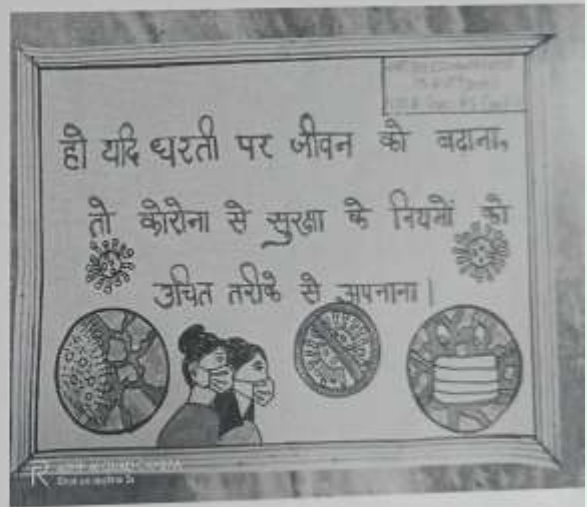 हो यदि धरती पर जीवन को बढाना,
तो कोरोना से सुरक्षा के नियमों को
उचित तरीके से अपनाना।